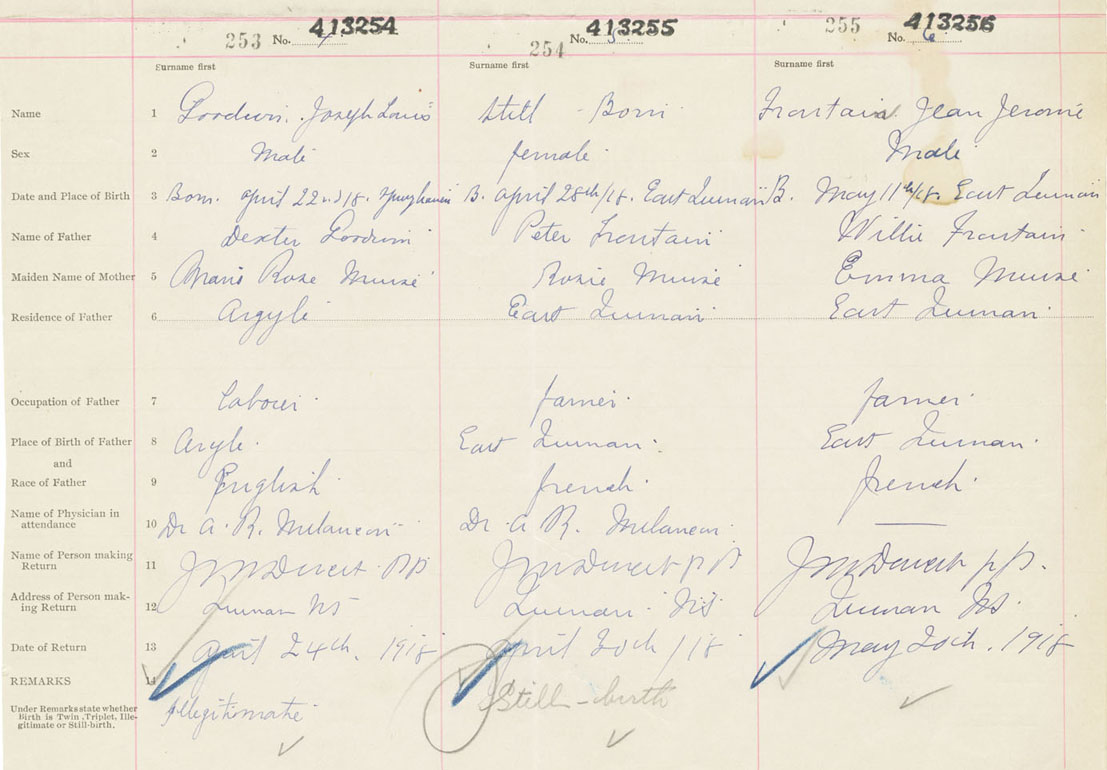 253 No. 4 413254 254 No. 5 413255 255 No. 6 413256
Surname first Surname first Surname first
Name 1 Goodwin. Joseph Louis Still - Born Frontain Jean Jerome
Sex 2 Male female Male
Date and Place of Birth 3 Born. april 22nd 18. B. april 28th/18. East Quinan B. May 11th/18. East Quinan
Name of Father 4 Dexter Goodwin Peter Frontain Willie Frontain
Maiden Name of Mother 5 Marie Rose Muise Rosie Muise Emma Muise
Residence of Father 6 Argyle East Quinan East Quinan
Occupation of Father 7 Labourer farmer farmer
Place of Birth of Father 8 Argyle. East Quinan. East Quinan.
and
Race of Father 9 English french. french.
Name of Physician in
attendance 10 Dr A. R. Melancon Dr A R. Melancon —
Name of Person making
Return 11 P.P. p P p P.
Address of Person mak-
ing Return 12 Quinan NS Quinan. N.S Quinan NS.
Date of Return 13 April 24th. 1918 April /18 May 20th. 1918
REMARKS 14
Under Remarks state whether
Birth is Twin, Triplet, Ille-
gitimate or Still-birth. Illegitimate Still-birth